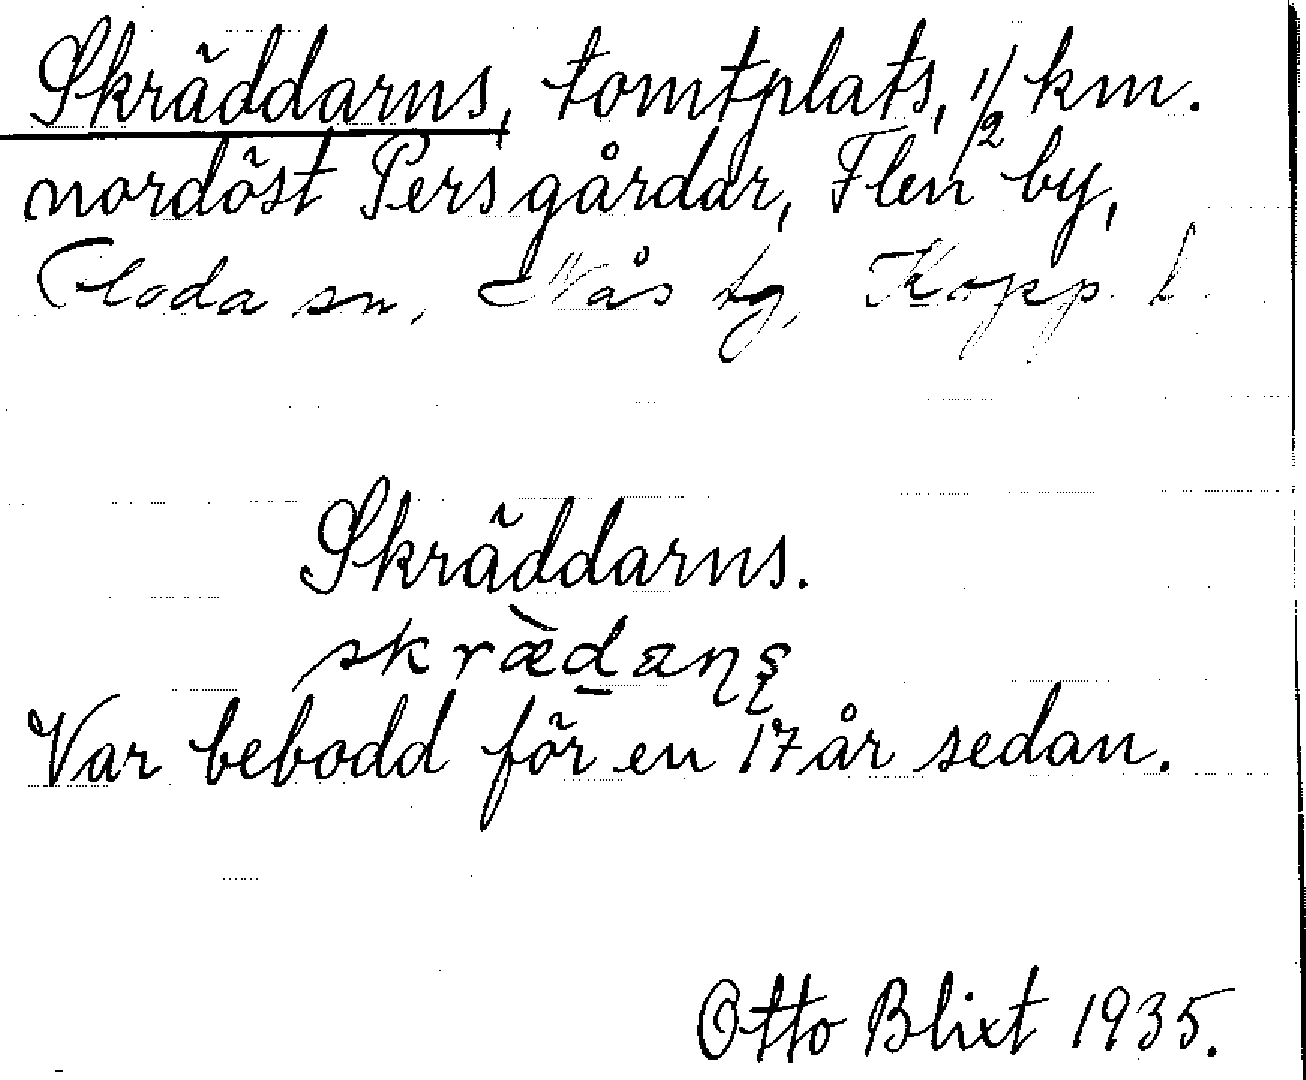 Skräddarns, tomtplats, 1/2 km.
nordöst Persgårdar, Flen by,
Floda sn, Nås tg, Kopp. l.
Skräddarns.
skræ̀da̱ṇṣ
Var bebodd för en 17 år sedan.
Otto Blixt 1935.